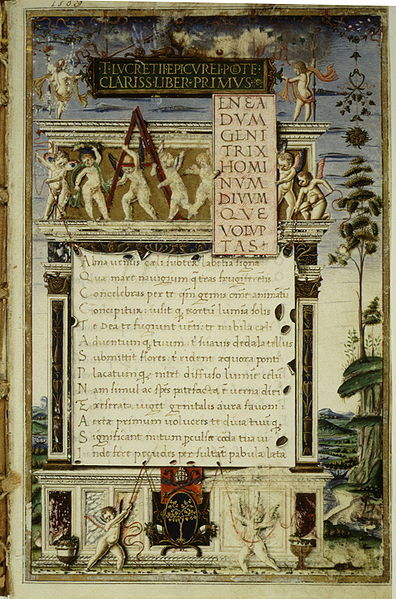 1509
T·LVCRETII·EPICVREI·POETE·
CLARISS·LIBER·PRIMVS·
A
ENEA
DVM
GENI
TRIX
HOMI
NVM
DIVVM
QVE
VOLVP
TAS
Alma uenus cæli subter labentia signa
Quæ mare nauigerum quæ terras frugiferentis
Concelebras per te quoniam genus omne animantum
Concipitur uisitque exortum lumina solis
Te Dea te fugiunt uenti te nubila cæli
Aduentumque tuum tibi suauis dædala tellus
Submittit flores tibi rident æquora ponti
Placatumque nitet diffuso lumine celum
Nam simul ac species patefacta est uerna diei
Et reserata uiget genitalis aura fauoni
Aeriæ primum uolucres te diua tuumque
Significant initum perculsæ corda tua ui
Inde feræ pecudes persultant pabula læta